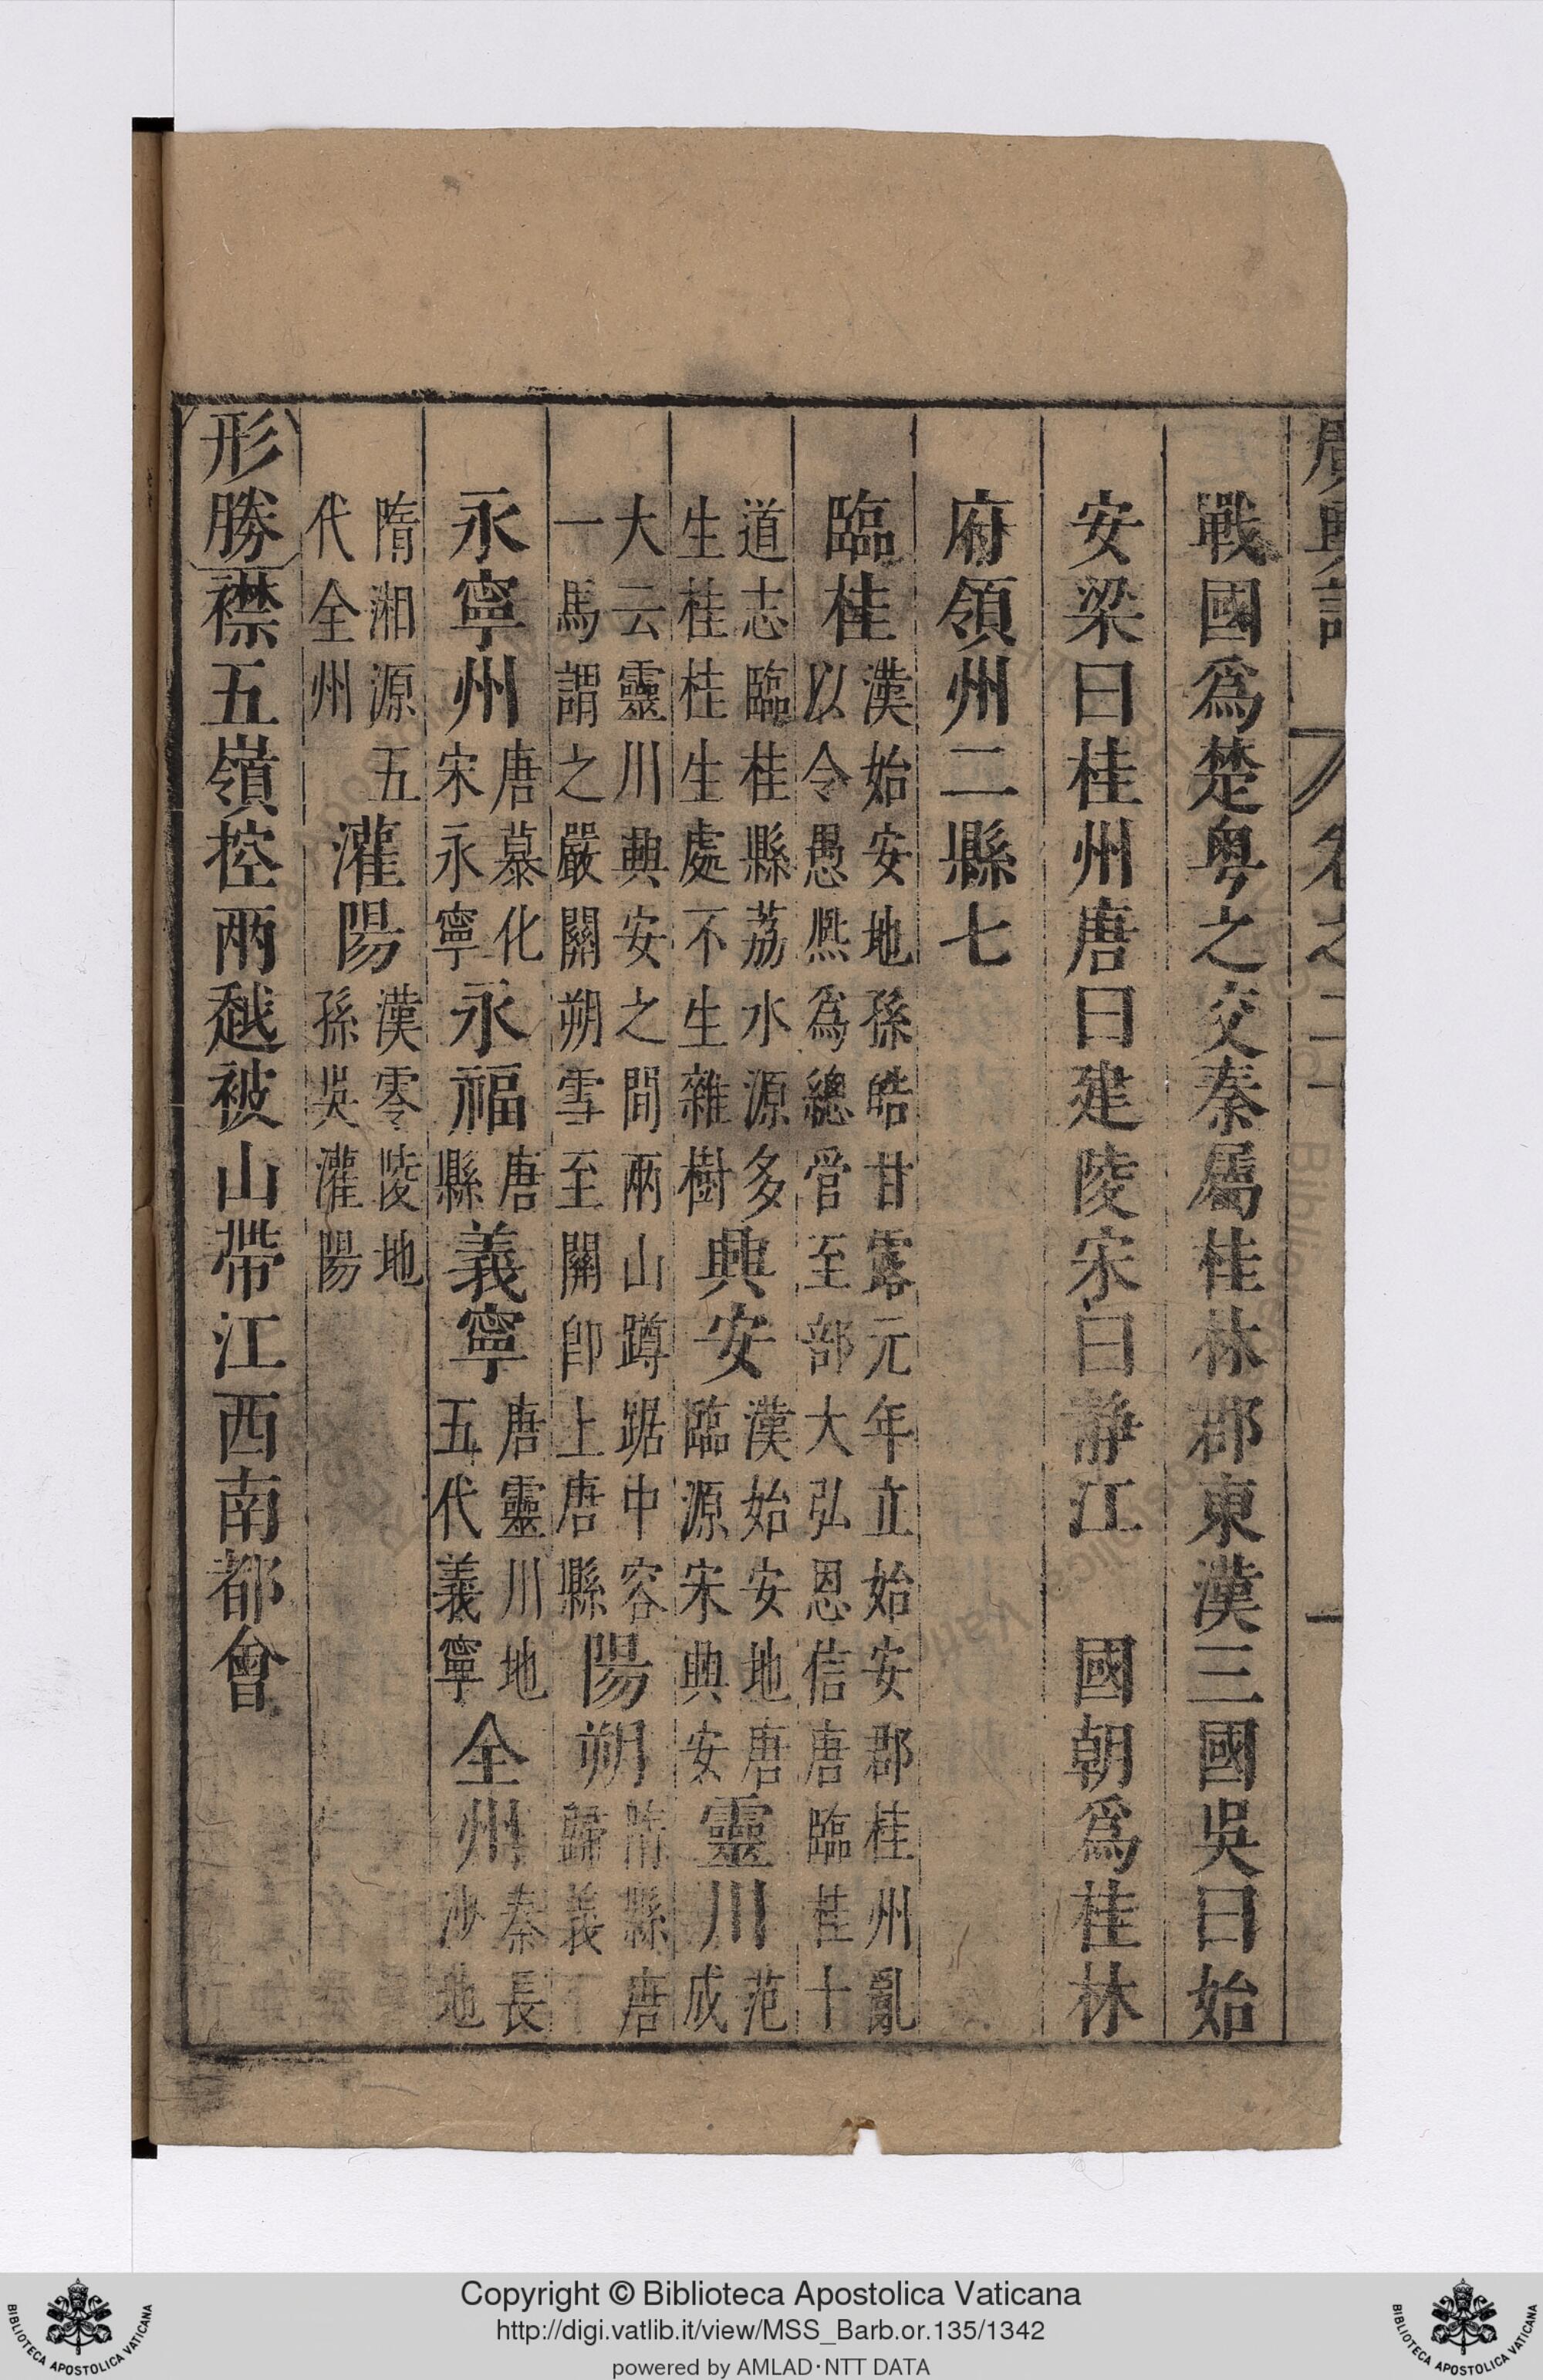 廣輿記 卷之二十 一
戰國爲楚粤之交秦屬桂林郡東漢三國吳曰始
安梁曰桂州唐曰建陵宋曰静江 國朝爲桂林
府領州二縣七
臨桂漢始安地孫皓甘露元年立始安郡桂州亂以令愚㷱爲總管至部大弘恩信唐臨桂十
道志臨桂縣荔水源多生桂桂生處不生雜樹興安漢始安地唐臨源宋興安靈川范成
大云靈川興安之間兩山蹲踞中容一馬謂之嚴關朔雪至關卽上唐縣陽朔隋縣唐歸義
永寧州唐慕化宋永寧永福唐縣義寧唐靈川地五代義寧全州秦長沙地
隋湘源五代全州灌陽漢零陵地孫吳灌陽
形勝襟五嶺控兩越被山帶江西南都會
Copyright © Biblioteca Apostolica Vaticana
http://digi.vatlib.it/view/MSS_Barb.or.135/1342
powered by AMLAD·NTT DATA
BIBLIOTECA APOSTOLICA VATICANA
BIBLIOTECA APOSTOLICA VATICANA